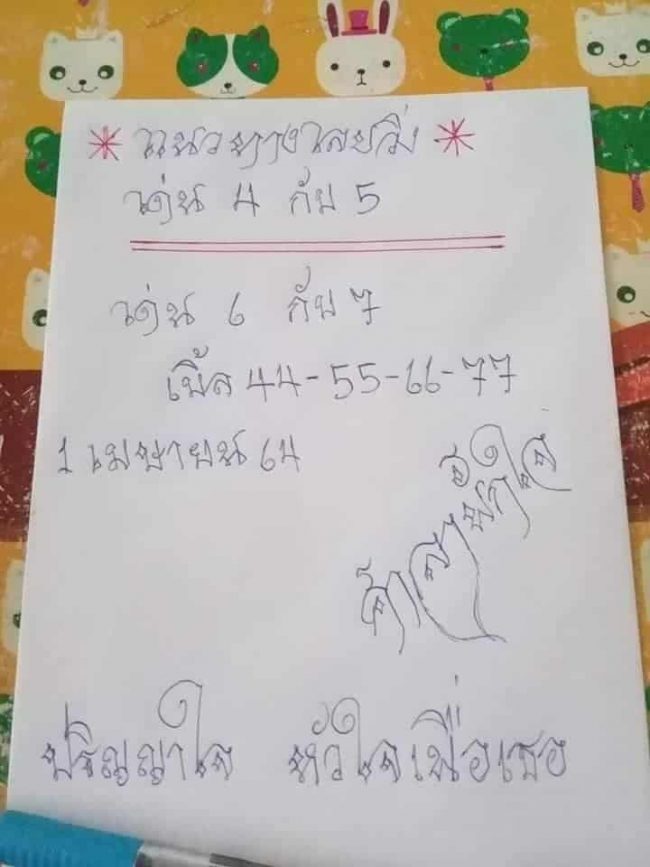 * แนวทางเลขวิ่ง *
เด่น 4 กับ 5
เด่น 6 กับ 7
เบิ้ล 44-55-66-77
1 เมษายน 64
ปริญญาใจ หัวใจเพื่อเธอ